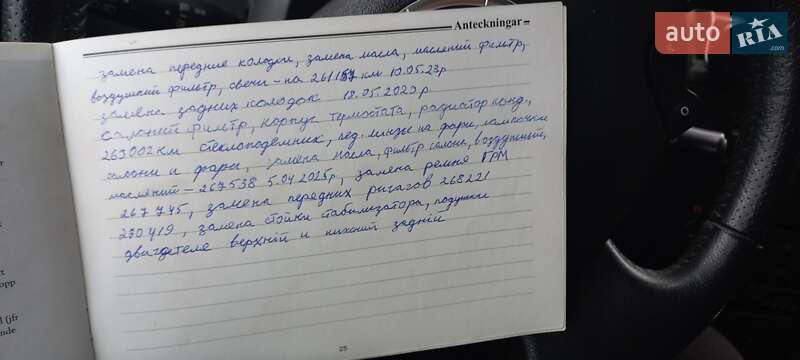 auto
RIA
.com
Anteckningar
замена передние колодки, замена масла, масленій фильтр,
воздушний фильтр, свечи - на 261157 км 10.05.23р
замена задних колодок 18.05.2023.р
салоній фильтр, корпус термостата, радиатор конд.,
263002 км стеклоподёмник, лед. линзы на фары, лампочки
салони и фары, замена масла, фильтр салона, воздушний,
масленій - 267538 5.04.2025р, замена ремня ГРМ
267745, замена передних ричагов 268221
270419, замена стойки стабилизатора, подушки
двигателе верхній и нижній задній
25
opp
l (jfr
nde